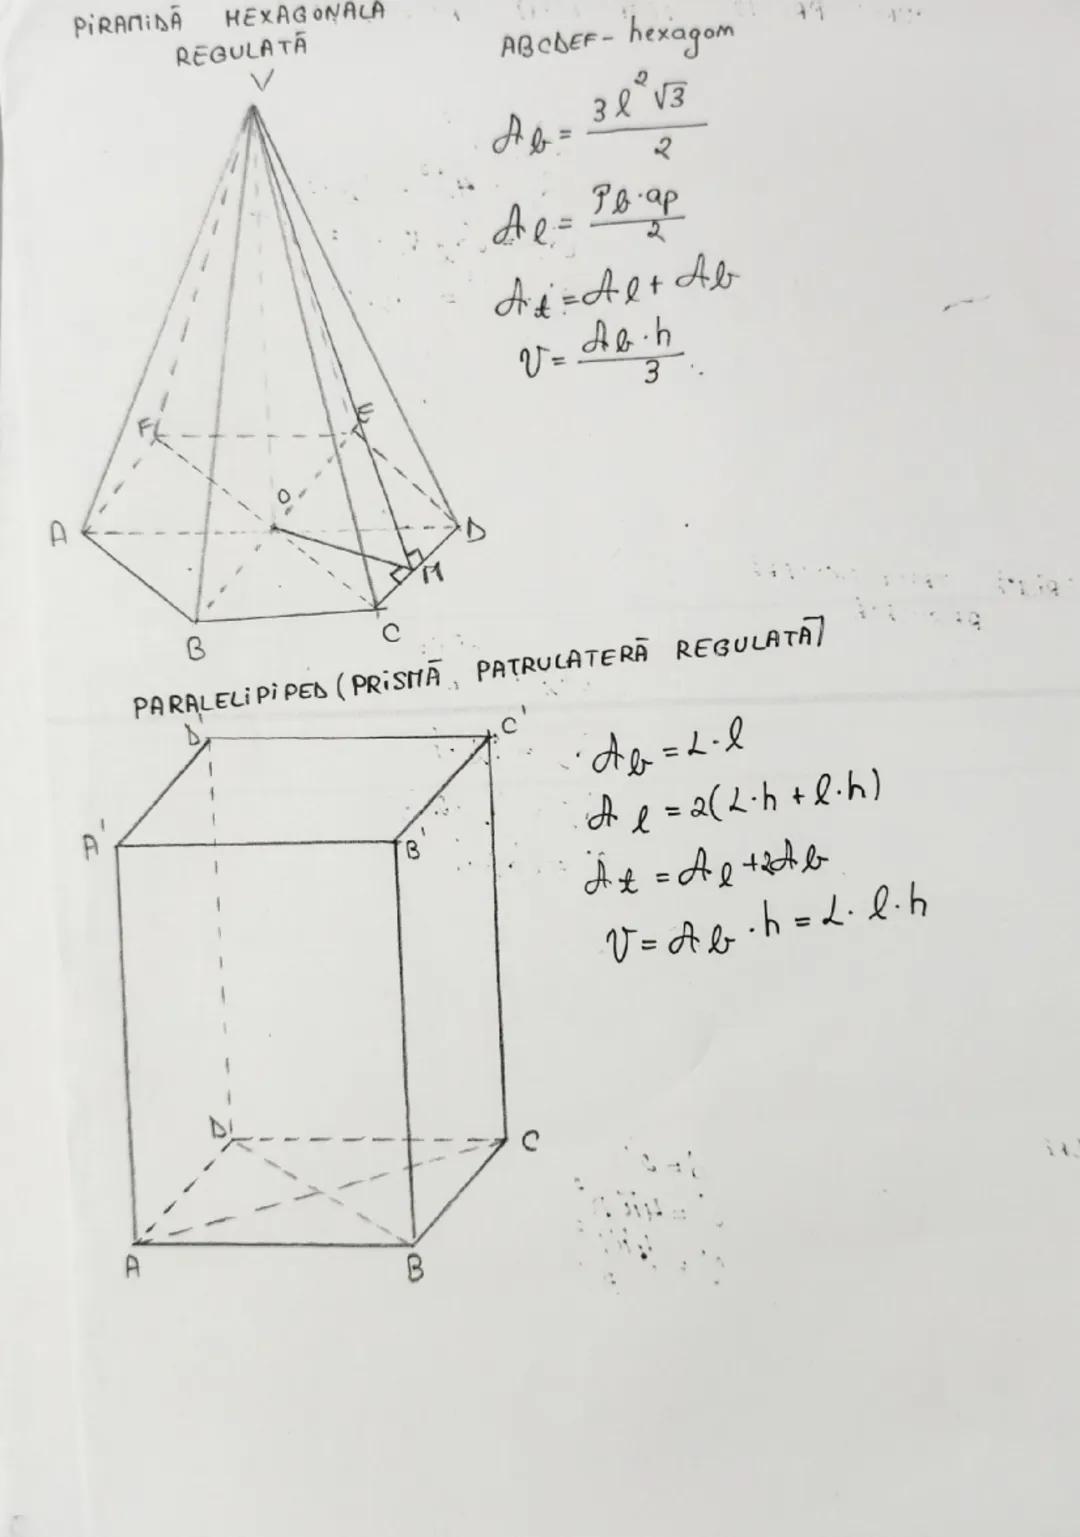 PiRAMiDĂ HEXAGONALĂ
REGULATĂ
ABCDEF - hexagom
V
Ab = 3l²√3 / 2
Al = Pb·ap / 2
At = Al + Ab
V = Ab·h / 3
F
E
O
A
D
M
B
C
PARALELiPiPED (PRiSMĂ PATRULATERĂ REGULATĂ)
D'
C'
Ab = L·l
A'
B'
Al = 2(L·h + l·h)
At = Al + 2Ab
V = Ab·h = L·l·h
D
C
A
B